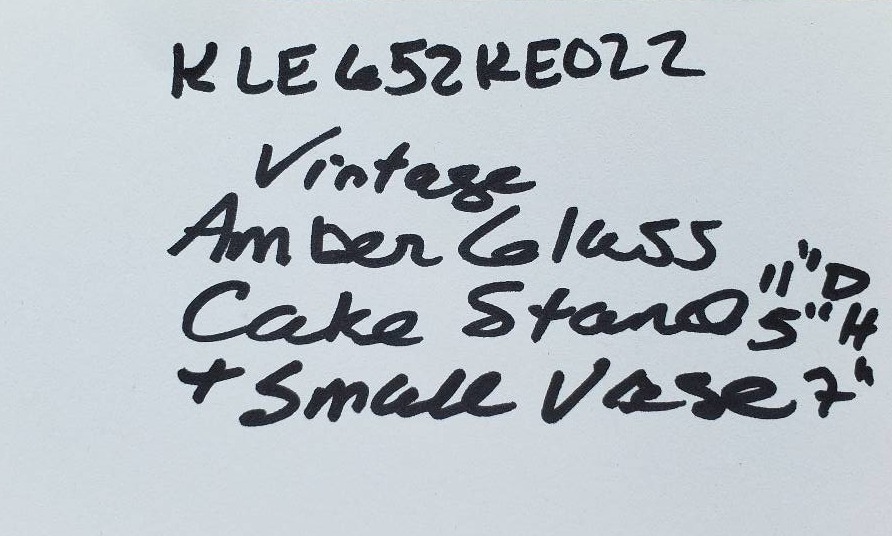 KLE652KE022
Vintage
Amber Glass
Cake Stand 11"D 5"H
+ Small Vase 7"